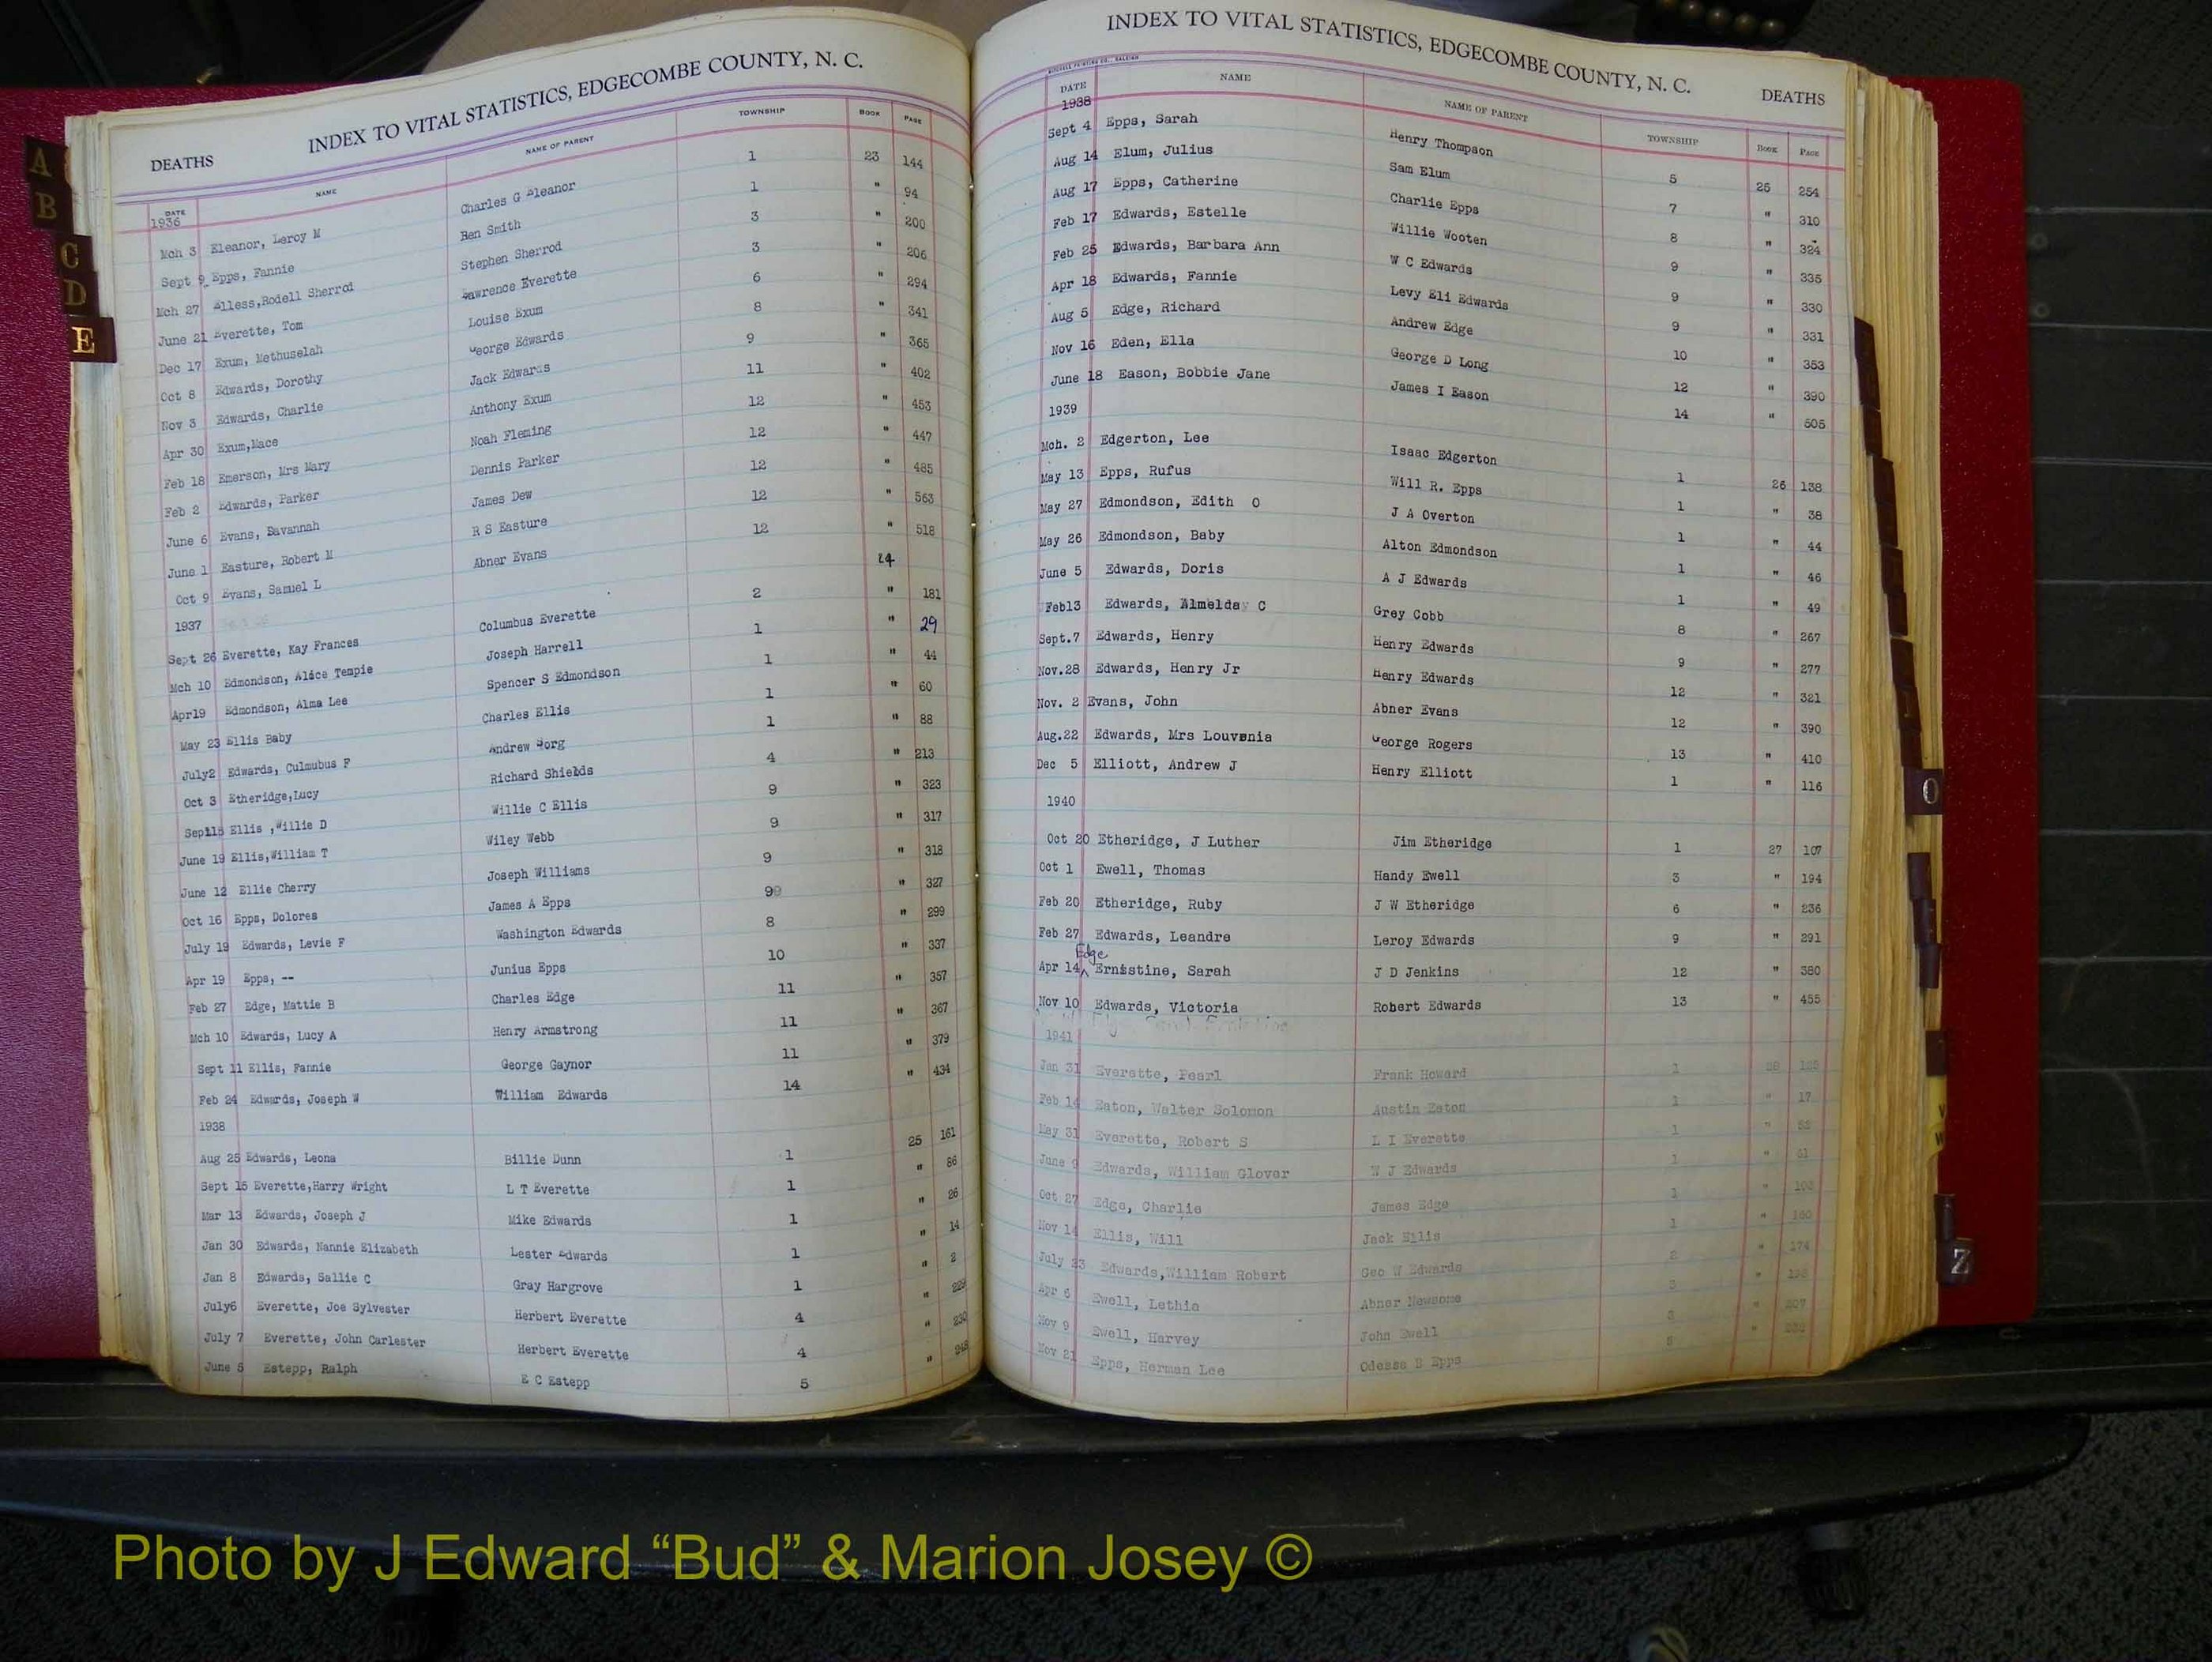 INDEX TO VITAL STATISTICS, EDGECOMBE COUNTY, N. C.
DEATHS
DATE NAME NAME OF PARENT TOWNSHIP BOOK PAGE
1936
Mch 3 Eleanor, Leroy M Charles G Eleanor 1 23 144
Sept 9 Epps, Fannie Ben Smith 1 " 94
Mch 27 Elless,Rodell Sherrod Stephen Sherrod 3 " 200
June 21 Everette, Tom Lawrence Everette 3 " 206
Dec 17 Exum, Methuselah Louise Exum 6 " 294
Oct 8 Edwards, Dorothy George Edwards 8 " 341
Nov 3 Edwards, Charlie Jack Edwards 9 " 365
Apr 30 Exum,Mace Anthony Exum 11 " 402
Feb 18 Emerson, Mrs Mary Noah Fleming 12 " 453
Feb 2 Edwards, Parker Dennis Parker 12 " 447
June 6 Evans, Savannah James Dew 12 " 485
June 1 Easture, Robert M R S Easture 12 " 563
Oct 9 Evans, Samuel L Abner Evans 12 " 518
1937 24
Sept 26 Everette, Kay Frances Columbus Everette 2 " 181
Mch 10 Edmondson, Alice Tempie Joseph Harrell 1 " 29
Apr19 Edmondson, Alma Lee Spencer S Edmondson 1 " 44
May 23 Ellis Baby Charles Ellis 1 " 60
July2 Edwards, Culmubus F Andrew 1 " 88
Oct 3 Etheridge,Lucy Richard Shields 4 " 213
Ellis ,Willie D Willie C Ellis 9 " 323
June 19 Ellis,William T Wiley Webb 9 " 317
June 12 Ellie Cherry Joseph Williams 9 " 318
Oct 16 Epps, Dolores James A Epps 99 " 327
July 19 Edwards, Levie F Washington Edwards 8 " 299
Apr 19 Epps, -- Junius Epps 10 " 337
Feb 27 Edge, Mattie B Charles Edge 11 " 357
Mch 10 Edwards, Lucy A Henry Armstrong 11 " 367
Sept 11 Ellis, Fannie George Gaynor 11 " 379
Feb 24 Edwards, Joseph W William Edwards 14 " 434
1938
Aug 25 Edwards, Leona Billie Dunn 1 25 161
Sept 15 Everette,Harry Wright L T Everette 1 " 86
Mar 13 Edwards, Joseph J Mike Edwards 1 " 26
Jan 30 Edwards, Nannie Elizabeth Lester Edwards 1 " 14
Jan 8 Edwards, Sallie C Gray Hargrove 1 " 2
July6 Everette, Joe Sylvester Herbert Everette 4 "
July 7 Everette, John Carlester Herbert Everette 4 " 230
June 5 Estepp, Ralph E C Estepp 5 "
INDEX TO VITAL STATISTICS, EDGECOMBE COUNTY, N. C.
DEATHS
MITCHELL PRINTING CO., RALEIGH
DATE NAME NAME OF PARENT TOWNSHIP BOOK PAGE
1938
Sept 4 Epps, Sarah Henry Thompson 5 25 254
Aug 14 Elum, Julius Sam Elum 7 " 310
Aug 17 Epps, Catherine Charlie Epps 8 " 324
Feb 17 Edwards, Estelle Willie Wooten 9 " 335
Feb 25 Edwards, Barbara Ann W C Edwards 9 " 330
Apr 18 Edwards, Fannie Levy Eli Edwards 9 " 331
Aug 5 Edge, Richard Andrew Edge 10 " 353
Nov 16 Eden, Ella George D Long 12 " 390
June 18 Eason, Bobbie Jane James I Eason 14 " 505
1939
Mch. 2 Edgerton, Lee Isaac Edgerton 1 26 138
May 13 Epps, Rufus Will R. Epps 1 " 38
May 27 Edmondson, Edith O J A Overton 1 " 44
May 26 Edmondson, Baby Alton Edmondson 1 " 46
June 5 Edwards, Doris A J Edwards 1 " 49
Feb13 Edwards, Almelda C Grey Cobb 8 " 267
Sept.7 Edwards, Henry Henry Edwards 9 " 277
Nov.28 Edwards, Henry Jr Henry Edwards 12 " 321
Nov. 2 Evans, John Abner Evans 12 " 390
Aug.22 Edwards, Mrs Louvenia George Rogers 13 " 410
Dec 5 Elliott, Andrew J Henry Elliott 1 " 116
1940
Oct 20 Etheridge, J Luther Jim Etheridge 1 27 107
Oct 1 Ewell, Thomas Handy Ewell 3 " 194
Feb 20 Etheridge, Ruby J W Etheridge 6 " 236
Feb 27 Edwards, Leandre Leroy Edwards 9 " 291
Edge
Apr 14 Ernestine, Sarah J D Jenkins 12 " 380
Nov 10 Edwards, Victoria Robert Edwards 13 " 455
1941
Jan 31 Everette, Pearl Frank Howard 1 28
Feb 14 Eaton, Walter Solomon Austin Eaton 1 " 17
May 31 Everette, Robert S L I Everette 1 "
June 9 Edwards, William Glover W J Edwards 1 "
Oct 27 Edge, Charlie James Edge 1 "
Nov 14 Ellis, Will Jack Ellis 1 "
July 23 Edwards,William Robert Geo W Edwards 2 " 174
Apr 6 Ewell, Lethia Abner Newsome 3
Nov 9 Ewell, Harvey John Ewell 3 "
Nov 21 Epps, Herman Lee Odessa B Epps "
A
B
C
D
E
O
Z
Photo by J Edward “Bud” & Marion Josey ©